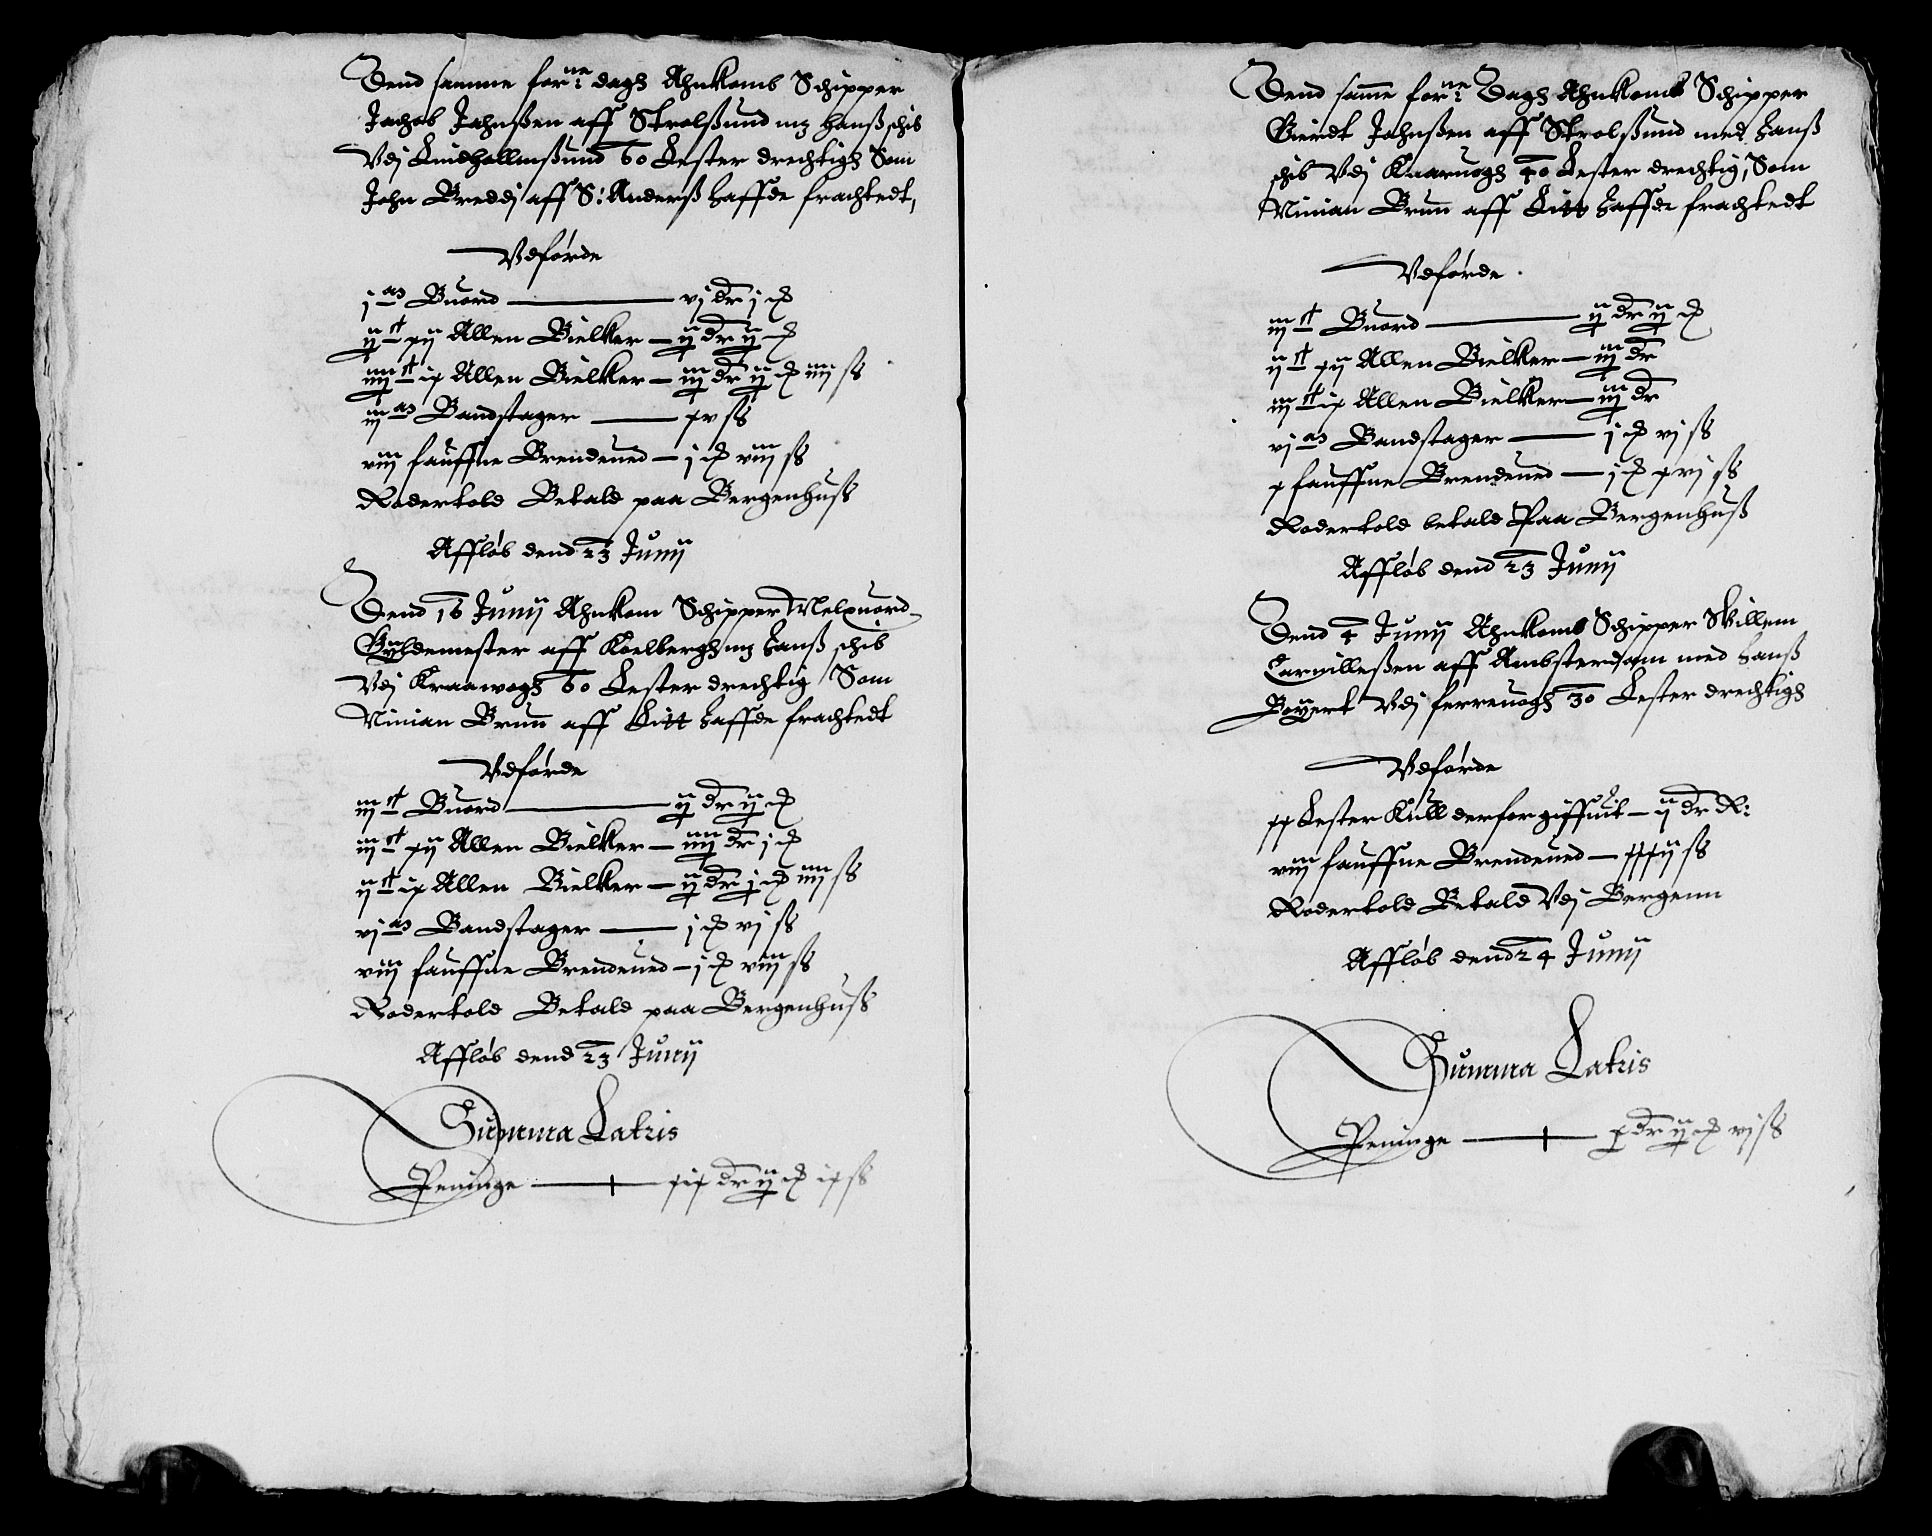 Dend samme forne: dagh Ahnkomb Schipper
Jachob Jahnßen aff Strolßund mz hanß schib
Vdj Lindhollmßund 60 Lester drechtigh Som
John Breddj aff S: Anderß haffde frachtedt,
Vdførde
j as Buord — vj dr j
ij ct xij Allen Bielker — ij dr ij
iiij ct ix Allen Bielker — iij dr ij iiij ß
iij as Bandstager — xv ß
viij fauffne Brendeued — j viij ß
Rodertold Betald paa Bergenhuß
Affløb dend 23 Junij
Dend 16 Junij Ahnkom Schipper Melquord
Gyldemester aff Koelbergh mz hanß schib
Vdj Kraawogh 60 Lester drechtig Som
Ninian Brun aff Litt haffde frachtedt
Vdførde
iij ct Buord — ij dr ij
iij ct xij Allen Bielker — iiij dr j
ij ct ix Allen Bielker — ij dr j iiij ß
vj as Bandstager — j vj ß
viij fauffne Brendeued — j viij ß
Rodertold Betald paa Bergenhuß
Affløb dend 23 Junij
Summa Latris
Peninge — xix dr ij ix ß
Dend same forne: Dagh Ahnkomb Schipper
Gierdt Johnßen aff Strolßund med hanß
schib Vdj Kaaruogh 40 Lester drechtig, Som
Ninian Brun aff Litt haffde frachtedt
Vdførde
iij ct Buord — ij dr ij
ij ct xij Allen Bielker — iij dr
iij ct ix Allen Bielker — iij dr
vj as Bandstager — j vj ß
x fauffne Brendeued — j xvj ß
Rodertold betald Paa Bergenhuß
Affløb dend 23 Junij
Dend 4 Junij Ahnkomb Schipper Willem
Carnilleßen aff Ambsterdam med hanß
Boyert Vdj ferreuogh 30 Lester drechtigh
Vdførde
xx Lester Kull derfor giffuit — ij dr R:
viij fauffne Brendeued — xxxij ß
Rodertold Betald Vdj Bergenn
Affløb dend 24 Junij
Summa Latris
Peninge — x dr ij vj ß